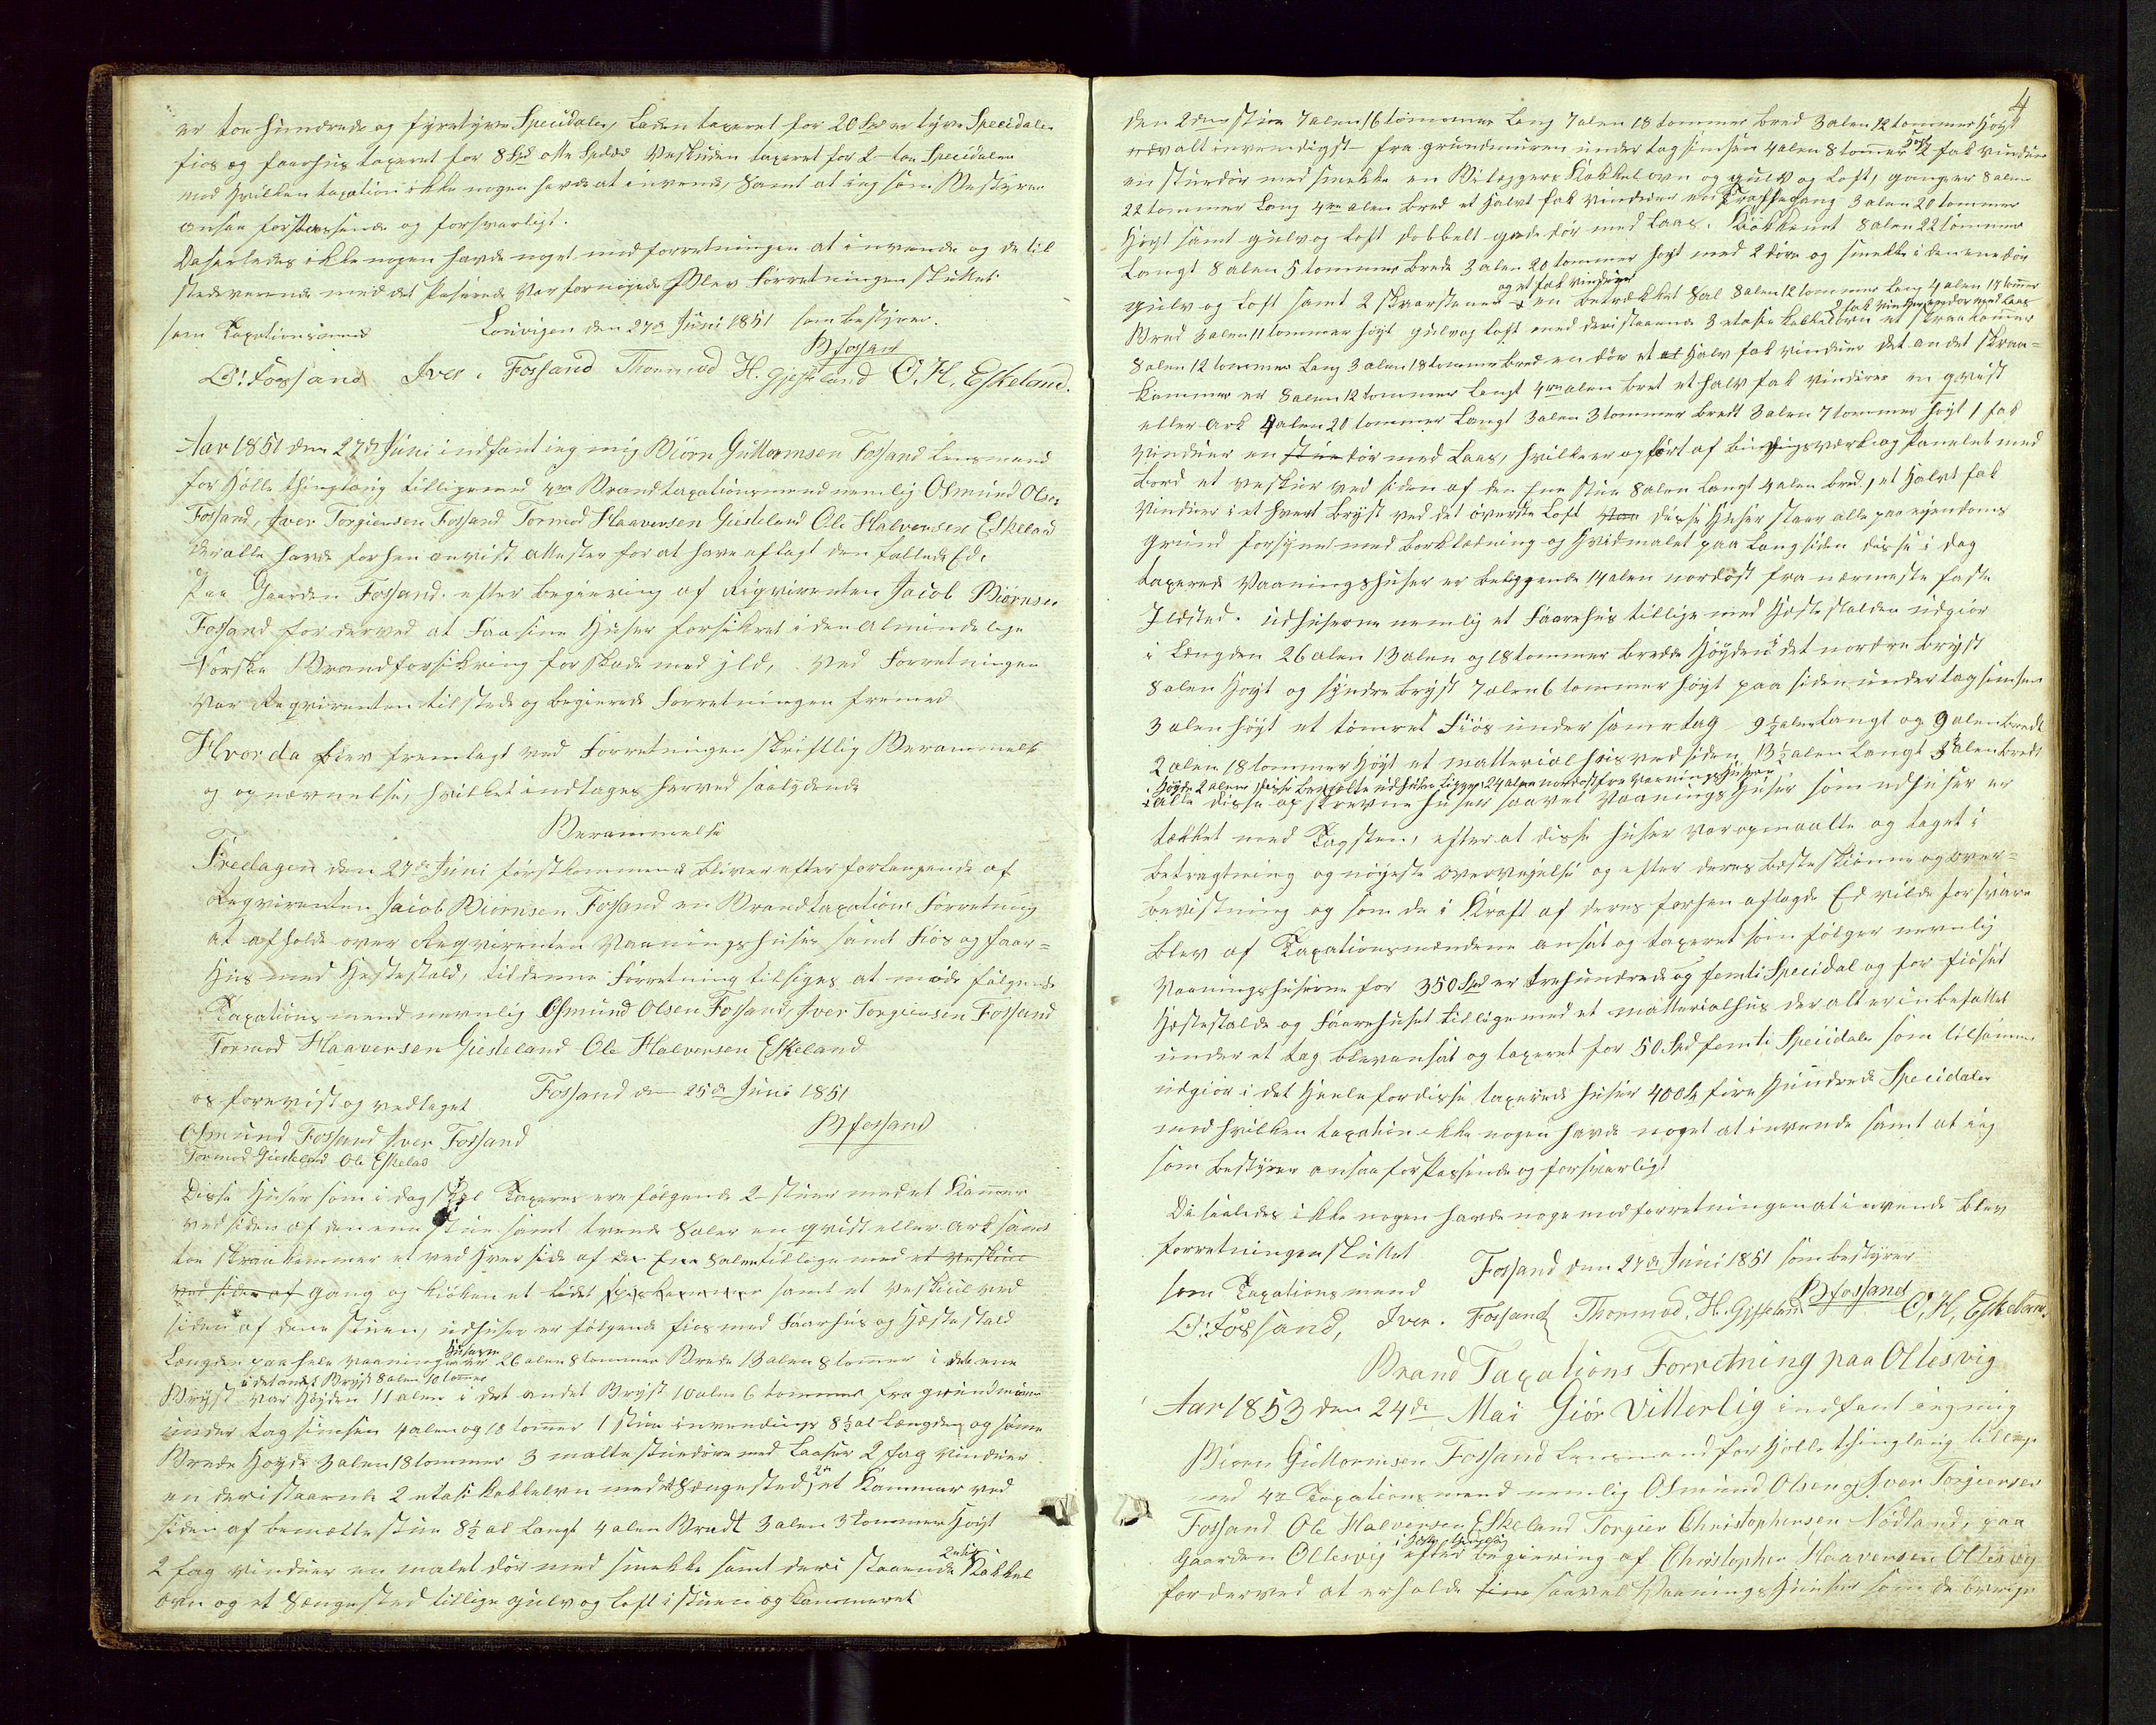 er toe hundrede og fyretyve Specidaler, Laden taxeret for 20 Spd er tyve Specidaler
fios og faarhus taxeret for 8 Spd otte Spcdlr Veskuden taxeret for 2 toe Specidaler
mod hvilken taxation ikke nogen havde at invende, Samt at ieg som Bestyrer
ansaa for Passende og forsvarligt.
Da saaledes ikke nogen havde noget mod forretningen at invende og de til
stedeverende med det Passerede Var fornöyede Blev Forretningen sluttet
Lerivigen den 27de Juni 1851 som bestyrer.
som Taxationsmend
BFossand
O. Fossand Iver. Fossand Thormod H. Gjesteland O. H. Eskeland.
Aar 1851 den 27de Juni indfant ieg mig Biörn Guttormsen Fossand Lensmand
for Hölle thinglaug tilligemed 4re Brandtaxationsmend nemlig Osmund Olsen
Fossand, Iver Torgiersen Fossand Tormod Haaversen Giesteland Ole Halversen Eskeland
der alle havde forhen anvist attester for at have aflagt den fallede Ed.
Paa Gaarden Fossand efter begiering af Reqvirenten Jacob Biörnsen
Fossand for derved at Faa sine Huser forsikret i den Almindelige
Norske Brandforsikring for skade med ild, ved Forretningen
Var Reqvirenten tilstede og begierede Forretningen fremmed
Hvor da blev fremlagt ved Forretningen skriftlig Berammelse
og opnævnelse, hvilket indtages herved saalydende
Berammelse
Fredagen den 27de Juni förstkommende bliver efter forlangende af
Reqvirenten Jacob Biörnsen Fossand en Brandtaxations Forretning
at afholde over Reqvirenten Vaaningshuser samt Fiös og faar=
Hus med Hestestald, til denne Forretning tilsiges at møde fölgende
Taxationsmend nemlig Osmund Olsen Fossand, Iver Torgiersen Fossand
Tormod Haaversen Giesteland Ole Halversen Eskeland
Fossand den 25de Juni 1851
os forevist og vedtaget
BFossand
Osmund Fossand Iver Fossand
Tormod Giesteland Ole Eskeland
Disse Huser som i dag skal Taxeres ere fölgende 2 stuer med et Kammer
ved siden af den ene stue samt trende Saler en qvist eller ark samt
toe skraakammer et ved hver side af den Ene Salen tillige med et veskiul
ved siden af gang og kiöken et lidet spiskammer samt et veskiul ved
siden af dene stuen, udhuser er fölgende fios med Faarhus og Hestestald
Husene
Længden paa hele vaaningen er 26 alen 8 tommer Brede 13 alen 8 tomer i det ene
i det andet Bryst 8 alen 10 tomer
Bryst var Höyden 11 alen i det andet Bryst 10 alen 6 tommer fra grundmuren
under tag simsen 4 alen og 10 tomer 1 stue invendings 8½ al længden og same
Brede Höyde 3 alen 18 tommer 3 malte stuedöre med Laaser 2 fag vinduer
en deristaaende 2 etasie kakkelovn med 2 Sengested, et Kammer ved
siden af bemælte stue 8½ al Langt 4 alen Bredt 3 alen 3 tommer Höyt
2 etasie
2 fag vinduer en malet dör med smekke samt deri staaende Kakkel
ovn og et Sengested tillige gulv og Loft i stuen og Kammeret
4
den 2den stue 7 alen 16 tommer Lang 7 alen 18 tommer bred 3 alen 12 tommer Höyt
overalt invendigst fra grundmuren under tag simsen 4 alen 8 tomer 2 fak vinduer
en stuedör med smekke en Bilæggers Kakkelovn og gulv og Loft, gang er 8 alen
22 tommer Lang 4re alen bred et halvt fak vinduer en Trappegang 3 alen 20 tommer
Höyt samt gulv og Loft dobbelt gade dör med Laas. Kökkenet 8 alen 22 tommer
Langt 8 alen 5 tommer brede 3 alen 20 tommer höyt med 2 döre og smekke i den ene dör
og et fak vinduer
gulv og Loft samt 2 skaarstener en betrækket Sal 8 alen 12 tommer Lang 4 alen 17 tomer
2 fak vinduer en dör med Laas
Bred 3 alen 11 tommer höyt gulv og Loft med deristaaende 3 etasie kakkelovn et skraakamer
8 alen 12 tommer Lang 3 alen 18 tommer bred en dör et et Halv fak vinduer det andet skraa=
kammer er 8 alen 12 tommer Langt 4re alen bret et halv fak vinduer en qvist
eller Ark 4 alen 20 tommer Langt 3 alen 3 tommer bredt 3 alen 7 tommer höyt 1 fak
vinduer en stue dör med Laas, hvilke er opfört af bindingsværk og Panelet med
bord et veskiur ved siden af den Ene stue 8 alen Langt 4 alen bred, et Halvt fak
vinduer i et hvert bryst ved det överste Loft disse Huser staar alle paa ejendoms
grund forsynet med borklædning og Hvidmalet paa Langsiden disse i dag
taxerede Vaaningshuser er beliggende 14 alen nordöst fra nærmeste faste
Ildsted. udhuserne nemlig et Faarehus tillige med Hestestalden udgiör
i Længden 26 alen 13 alen og 18 tommer Bredde Höyden i det nordre bryst
8 alen Höyt og syndre bryst 7 alen 6 tommer höyt paa siden under tagsimsen
3 alen höyt et tömret Fiös under same tag 9½ alen Langt og 9 alen Bredt
2 alen 18 tommer Höyt et matterialhus ved siden 13½ alen Langt 3 alen bredt
Höyde 2 alen disse bemælte udhuser Ligger 24 alen nordost fra vaaningshuserne
Alle disse opskrevne huser saavel Vaanings Huser som udhuser er
tækket med Tagsten, efter at disse huser var opmaalte og taget i
betragtning og nöyeste overvejelse og efter deres bedste skiönne og over=
bevistning og som de i Kraft af deres forhen aflagde Ed vilde forsvare
blev af Taxationsmændene ansat og taxeret som fölger nemlig
Vaaningshuserne for 350 Spd er trehundrede og femti Specidal og for fiöset
Hestestalde og Faarehuset tillige med et matterialhus der alt er inbefattet
under et tag blev ansat og taxeret for 50 Spd femti Specidaler som tilsammen
udgiör i det Heele for disse taxerede huser 400 Sp fire Hundrede Specidaler
mod hvilken taxation ikke nogen havde noget at invende samt at ieg
som bestyrer ansaa for Passende og forsvarligt
Da saaledes ikke nogen havde noge mod forretningen at invende blev
forretningen sluttet
Fossand den 27de Juni 1851 som bestyrer
som Taxationsmend
BFossand
O. Fossand, Iver. Fossand Thormod. H. Gjesteland O, H, Eskeland.
Brand Taxations Forretning paa Oltesvig
Aar 1853 den 24de Mai Giör Vitterlig indfant ieg mig
Biörn Guttormsen Fossand Lensmand for Hölle thinglaug tillige
med 4re Taxationsmend nemlig Osmund Olsen og Iver Torgiersen
Fossand Ole Halversen Eskeland Torgier Christophersen Nödland, paa
i Hölle thinglaug
Gaarden Oltesvig efter begiering af Christopher Haaversen Oltesvig
for derved at erholde sine saavel Vaanings Huuser som de övrige